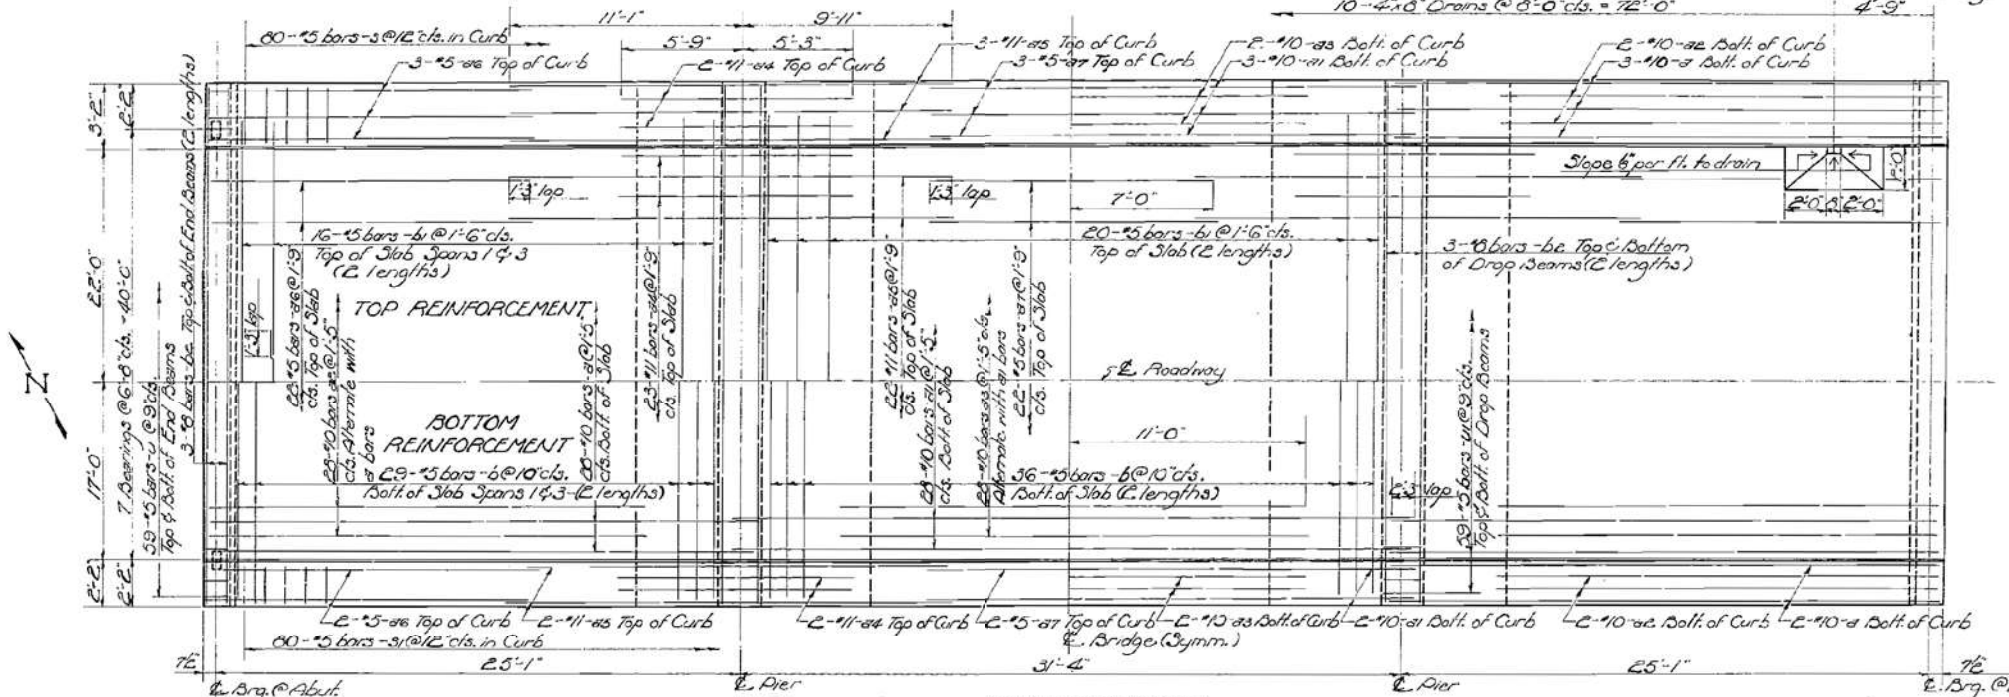 11'-1"
9'-11"
10-4"x8" Drains @ 8'-0" cts. = 72'-0"
4'-9"
80-#5 bars-s@12"cts. in Curb
5'-9"
5'-3"
3-#11-a5 Top of Curb
2-#10-a3 Bott. of Curb
2-#10-a2 Bott. of Curb
3-#5-a6 Top of Curb
2-#11-a4 Top of Curb
3-#5-a7 Top of Curb
3-#10-a1 Bott. of Curb
3-#10-a Bott. of Curb
3'-2"
2'-2"
Slope 6" per ft. to drain
1'-3" lap
1'-3" lap
7'-0"
2'-0"
8"
2'-0"
16-#5 bars-b1@1'-6"cts.
Top of Slab Spans 1 & 3
(2 lengths)
20-#5 bars-b1@1'-6"cts.
Top of Slab (2 lengths)
3-#8 bars-b2 Top & Bottom
of Drop Beams (2 lengths)
22'-0"
7 Bearings @ 6'-8"cts. = 40'-0"
3-#8 bars-b2 Top & Bott. of End Beams (2 lengths)
1'-3" lap
23-#5 bars-a6@1'-9"
cts. Top of Slab
TOP REINFORCEMENT
28-#10 bars a2@1'-5"
cts. Alternate with
a bars
28-#10 bars-a@1'-5"
cts. Bott. of Slab
23-#11 bars-a4@1'-9"
cts. Top of Slab
22-#11 bars-a5@1'-9"
cts. Top of Slab
28-#10 bars a1@1'-5"
cts. Bott. of Slab
28-#10 bars a3@1'-5"cts.
Alternate with a1 bars
22-#5 bars-a7@1'-9"
cts. Top of Slab
℄ Roadway
N
BOTTOM
REINFORCEMENT
11'-0"
29-#5 bars-b@10"cts.
Bott. of Slab Spans 1 & 3-(2 lengths)
36-#5 bars-b@10"cts.
Bott. of Slab (2 lengths)
2'-3" lap
17'-0"
59-#5 bars-u@9"cts.
Top & Bott. of End Beams
59-#5 bars-u1@9"cts.
Top & Bott. of Drop Beams
2'-2"
2'-2"
2-#5-a6 Top of Curb
2-#11-a5 Top of Curb
2-#11-a4 Top of Curb
2-#5-a7 Top of Curb
2-#10-a3 Bott. of Curb
2-#10-a1 Bott. of Curb
2-#10-a2 Bott. of Curb
2-#10-a Bott. of Curb
80-#5 bars-s1@12"cts. in Curb
℄ Bridge (Symm.)
7½"
25'-1"
31'-4"
25'-1"
7½"
℄ Brg. @ Abut.
℄ Pier
℄ Pier
℄ Brg. @